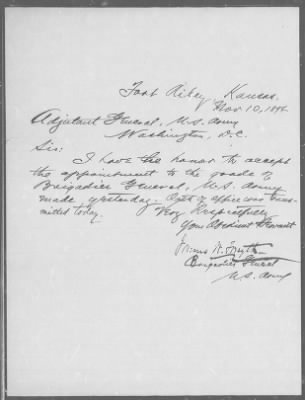 Fort Riley, Kansas.
Nov 10, 1894
Adjutant General, U.S. Army
Washington, D.C.
Sir:
I have the honor to accept
the appointment to the grade of
Brigadier General, U.S. Army
made yesterday. Oath of office was trans-
mitted today.
Very Respectfully
Your Obedient Servant
James W. Forsyth
Brigadier General
U.S. Army